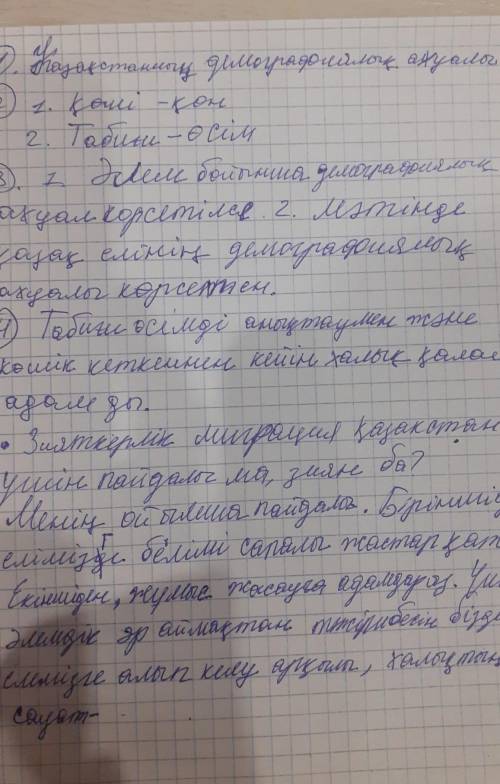 1). Қазақстанның демографоиялық ахуалы
2) 1. Көші - қон
2. Табиғи - өсім
3). 1 Әлем бойынша демографоиялық
ахуал көрсетілсе. 2. Мәтінде
қазақ елінің демографоиялық
ахуалы көрсеткен.
4) Табиғи өсімді анықтаумен және
көшік кеткеннен кейін халық қалай
адам ды.
• Зияткерлік миграция Қазақстан
үшін пайдалы ма, зиян ба?
Менің ойымша пайдалы. Біріншід
елімізде белімі саралы жастар қат
Екіншіден, жұмыс жасауға адамдар аз. Үш
әлемдік әр аймақтан тәжірибесін бізде
елемізге алып келу арқылы, халықтың
сауат-